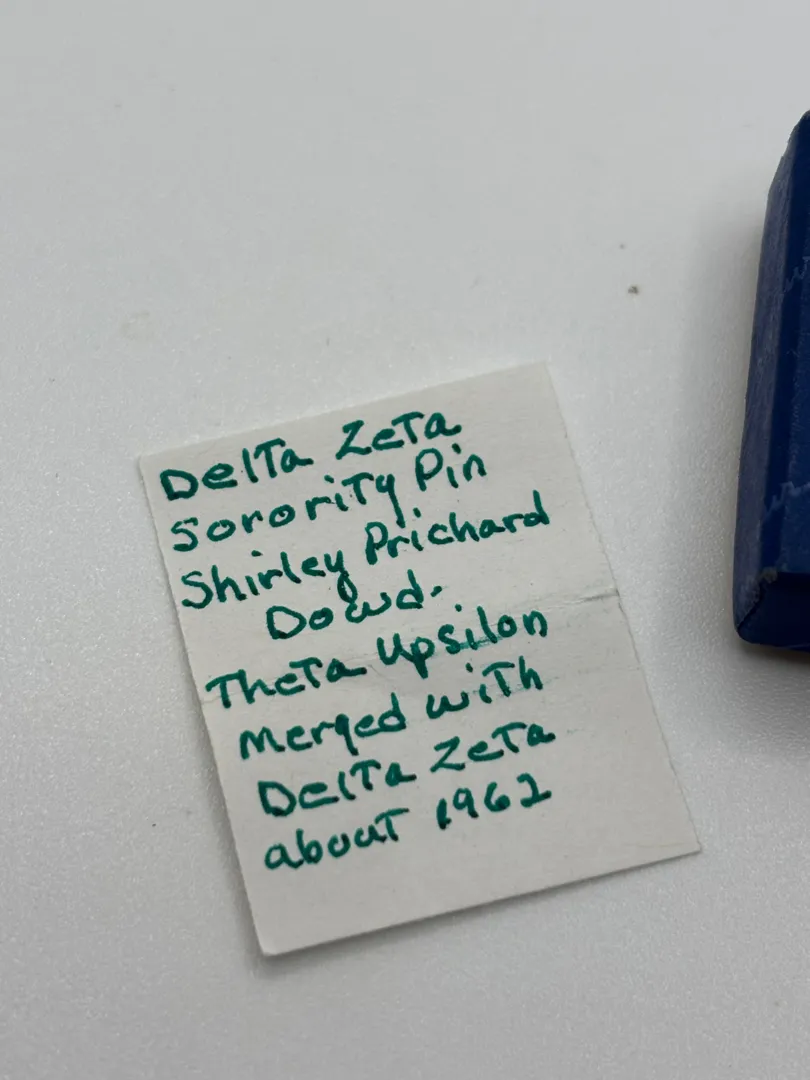 Delta Zeta
Sorority Pin
Shirley Prichard
Dowd.
Theta Upsilon
merged with
Delta Zeta
about 1962